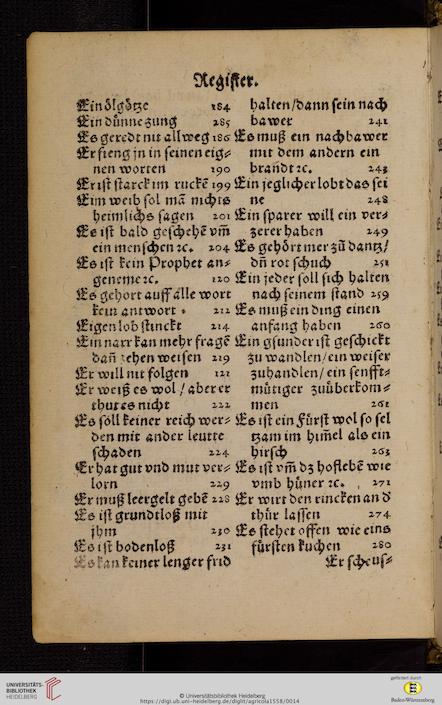 Register.
Ein ölgötze 184
Ein dünne zung 285
Es geredt nit allweg 186
Er fieng jn in seinen eig⸗
nen worten 190
Er ist starck im ruckē 199
Eim weib sol mā nichts
heimlichs sagen 201
Es ist bald geschehē vm̄
ein menschen ꝛc. 204
Es ist kein Prophet an⸗
geneme ꝛc. 120
Es gehort auff alle wort
kein antwort 212
Eigen lob stinckt 214
Ein narr kan mehr fragē
dañ zehen weisen 219
Er will nit folgen 121
Er weiß es wol / aber er
thut es nicht 222
Es soll keiner reich wer⸗
den mit ander leutte
schaden 224
Er hat gut vnd mut ver⸗
lorn 229
Er muß leergelt gebē 228
Es ist grundtloß mit
jhm 230
Es ist bodenloß 231
Es kan keiner lenger frid
halten / dann sein nach
bawer 241
Es muß ein nachbawer
mit dem andern ein
brandt ꝛc. 243
Ein jeglicher lobt das sei
ne 248
Ein sparer will ein ver⸗
zerer haben 249
Es gehört mer zů dantz /
dñ rot schuch 251
Ein jeder soll sich halten
nach seinem stand 259
Es muß ein ding einen
anfang haben 260
Ein gsunder ist geschickt
zu wandlen / ein weiser
zuhandlen / ein senfft⸗
mütiger zuüberkom⸗
men 261
Es ist ein Fürst wol so sel
tzam im him̄el als ein
hirsch 263
Es ist vm̄ dz hoflebē wie
vmb hüner ꝛc. 271
Er wirt den rincken an d'
thür lassen 274
Es stehet offen wie eins
fürsten kuchen 280
Er scheus⸗
UNIVERSITÄTS-
BIBLIOTHEK
HEIDELBERG
© Universitätsbibliothek Heidelberg
https://digi.ub.uni-heidelberg.de/diglit/agricola1558/0014
gefördert durch
Baden-Württemberg